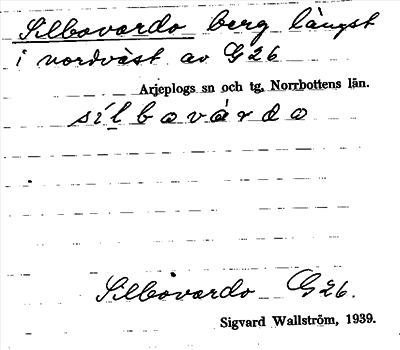 Silbovardo berg längst
i nordväst av G26
Arjeplogs sn och tg, Norrbottens län.
sílbovárdo
Silbovardo G26.
Sigvard Wallström, 1939.